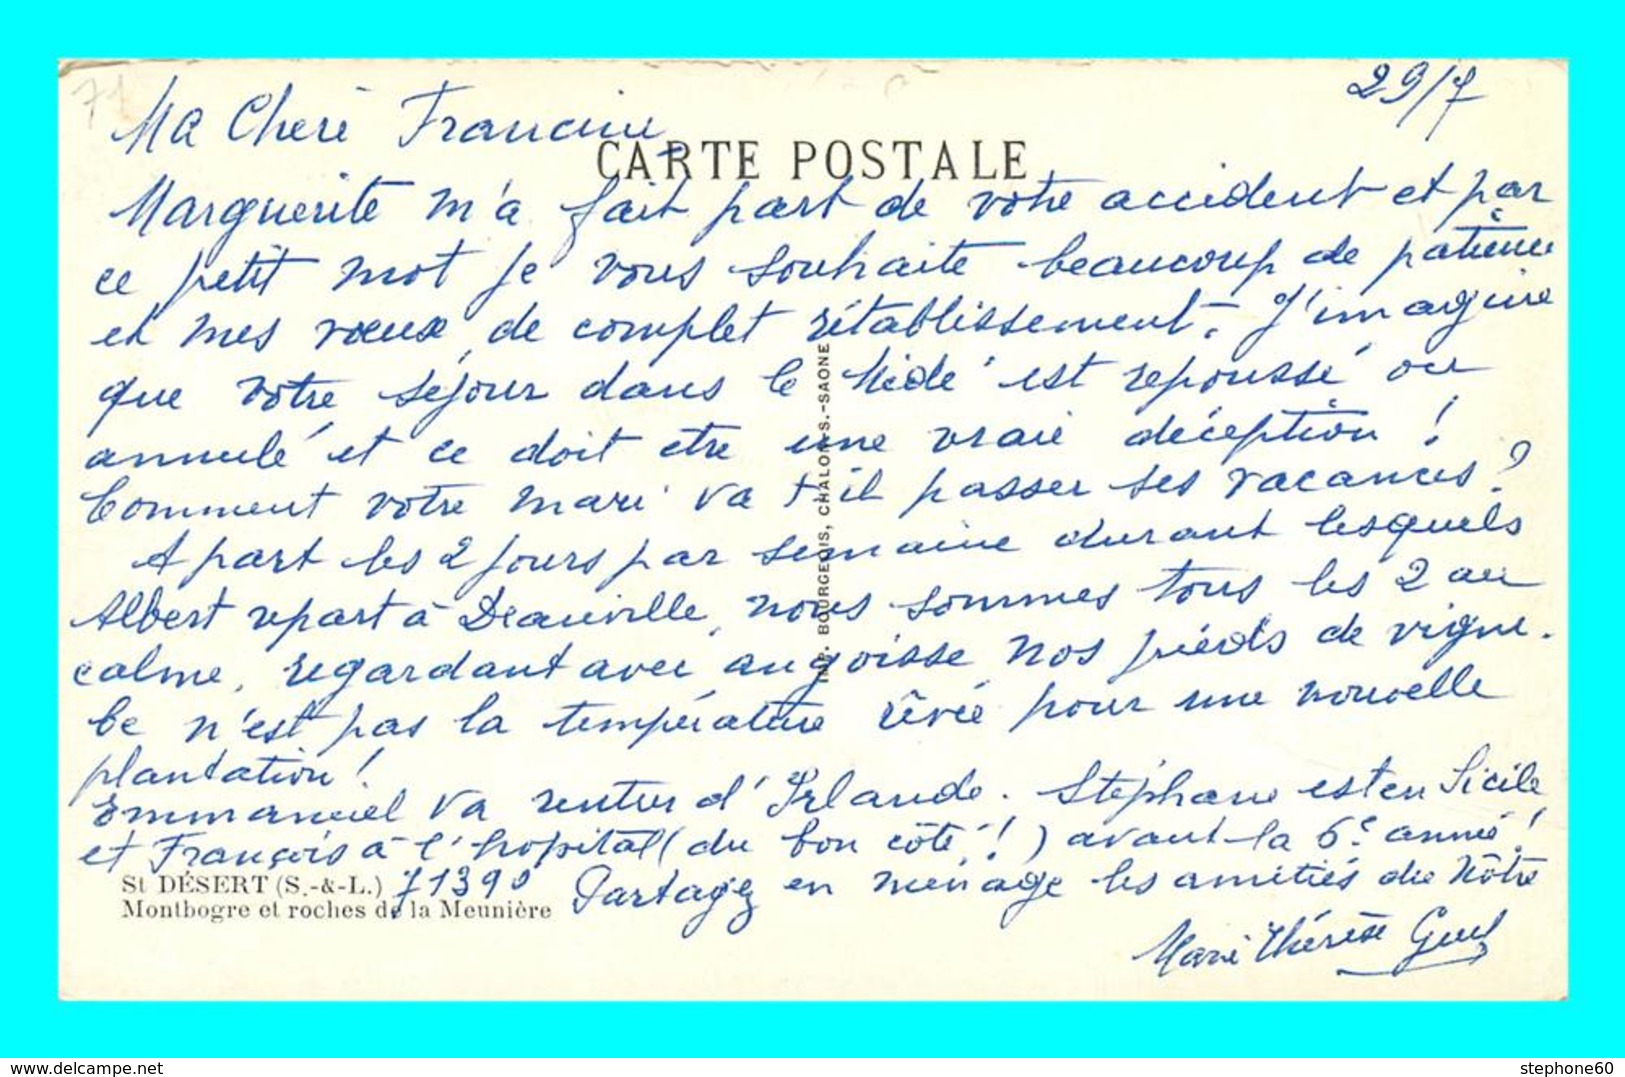 71
29/7
Ma Chère Francine
CARTE POSTALE
Marguerite m'a fait part de votre accident et par
ce petit mot je vous souhaite beaucoup de patience
et mes vœux de complet rétablissement. J'imagine
que votre séjour dans le Midi est repoussé ou
annulé et ce doit etre une vraie déception !
Comment votre mari va t il passer ses vacances ?
A part les 2 jours par semaine durant lesquels
Albert repart à Deauville, nous sommes tous les 2 au
calme, regardant avec angoisse nos pieds de vigne.
Ce n'est pas la température rêvée pour une nouvelle
plantation !
Emmanuel va rentrer d'Irlande. Stéphane est en Sicile
et François à l'hopital (du bon côté !) avant la 6e année !
St DÉSERT (S.-&-L.) 71390 Partagez en ménage les amitiés du Nôtre
Montbogre et roches de la Meunière
Marie Thérèse
IMP. BOURGEOIS, CHALON-S.-SAONE
www.delcampe.net
stephone60